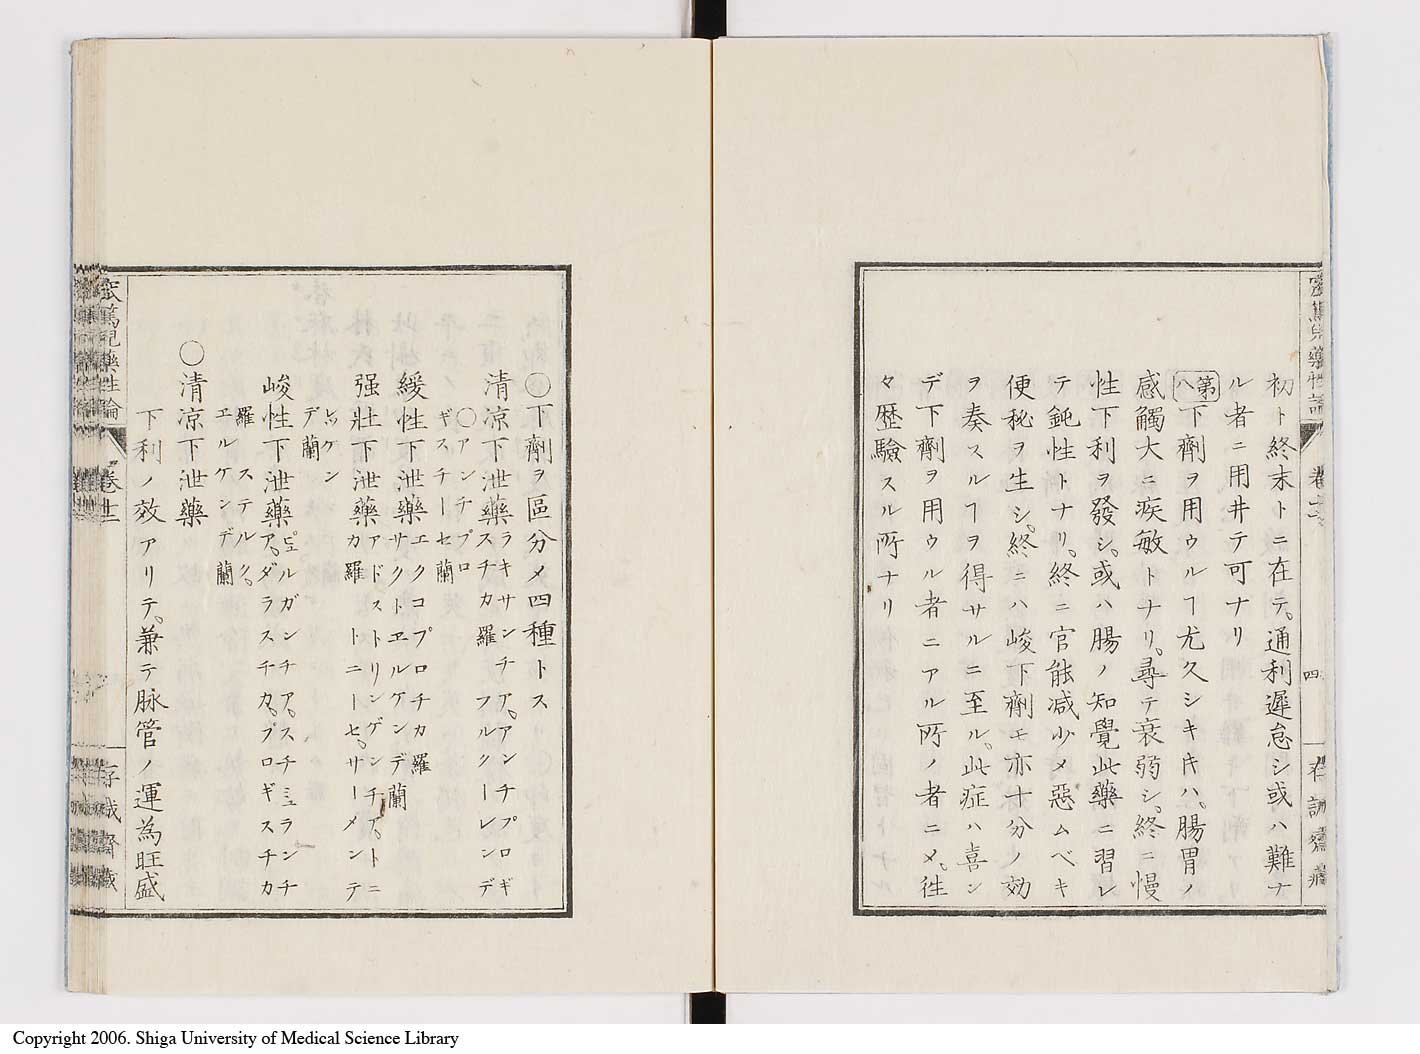 初ト終末トニ在テ。通利遲怠シ或ハ難ナ
ル者ニ用井テ可ナリ
第八 下劑ヲ用ウルヿ尤久シキ𪜈ハ。腸胃ノ
感觸大ニ疾敏トナリ。尋テ衰弱シ。終ニ慢
性下利ヲ發シ。或ハ腸ノ知覺此藥ニ習レ
テ鈍性トナリ。終ニ官能减少メ惡ムベキ
便秘ヲ生シ。終ニハ峻下劑モ亦十分ノ効
ヲ奏スルヿヲ得サルニ至ル。此症ハ喜ン
デ下劑ヲ用ウル者ニアル所ノ者ニメ。徃
々歴驗スル所ナリ
卷廿二
四
〇下劑ヲ區分メ四種トス
清凉下泄藥 ラキサンチア。アンチプロギ
スチカ 羅 フルクーレンデ
〇アンチプロ
ギスチーセ 蘭
緩性下泄藥 エクコプロチカ 羅
サクトヱルゲンデ 蘭
强壯下泄藥 アドストリンゲンチア。トニ
カ 羅 トニーセ。サーメンテ
レッケン
デ 蘭
峻性下泄藥 ピュルガンチア。スチミュランチ
ア。ダラスチカ。プロギスチカ
羅 ステルク。
エルケンデ 蘭
〇清凉下泄藥
下利ノ效アリテ。兼テ脉管ノ運為旺盛
窊篤兒藥性論
卷廿二
存誠齋藏
Copyright 2006. Shiga University of Medical Science Library